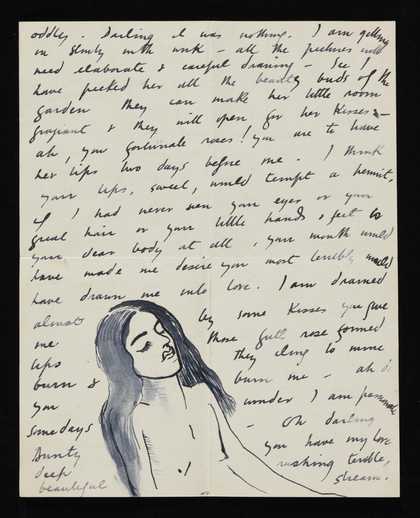 oddly. Darling it was nothing. I am getting
on slowly with work – all the pictures will
need elaborate & careful drawing – See I
have picked her all the beauty buds of the
garden they can make her little room
fragrant & they will open for her kisses –
ah, you fortunate roses! you are to have
her lips two days before me. I think
your lips, sweet, would tempt a hermit,
if I had never seen your eyes or your
great hair or your little hands & feet or
your dear body at all, your mouth would
have made me desire you most terribly would
have drawn me into love. I am drained
almost by some kisses you give
me those full rose formed
lips they cling to mine
burn & burn me – ah
you wonder I am passionate
some days – Oh darling
Bunty you have my love
deep rushing terrible,
beautiful stream.